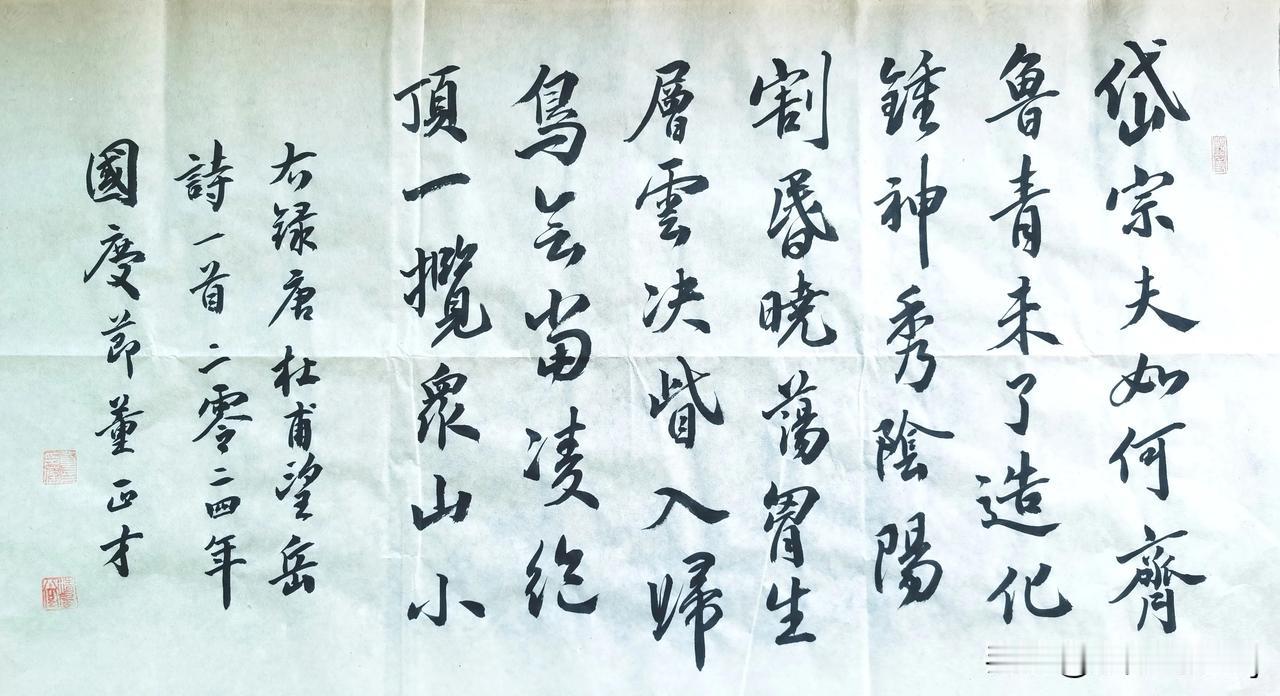 岱宗夫如何齊
魯青未了造化
鍾神秀陰陽
割昏曉蕩胷生
層雲决眥入歸
鳥会當凌絶
頂一攬衆山小
右録唐杜甫望岳
詩一首二零二四年
國慶節董正才